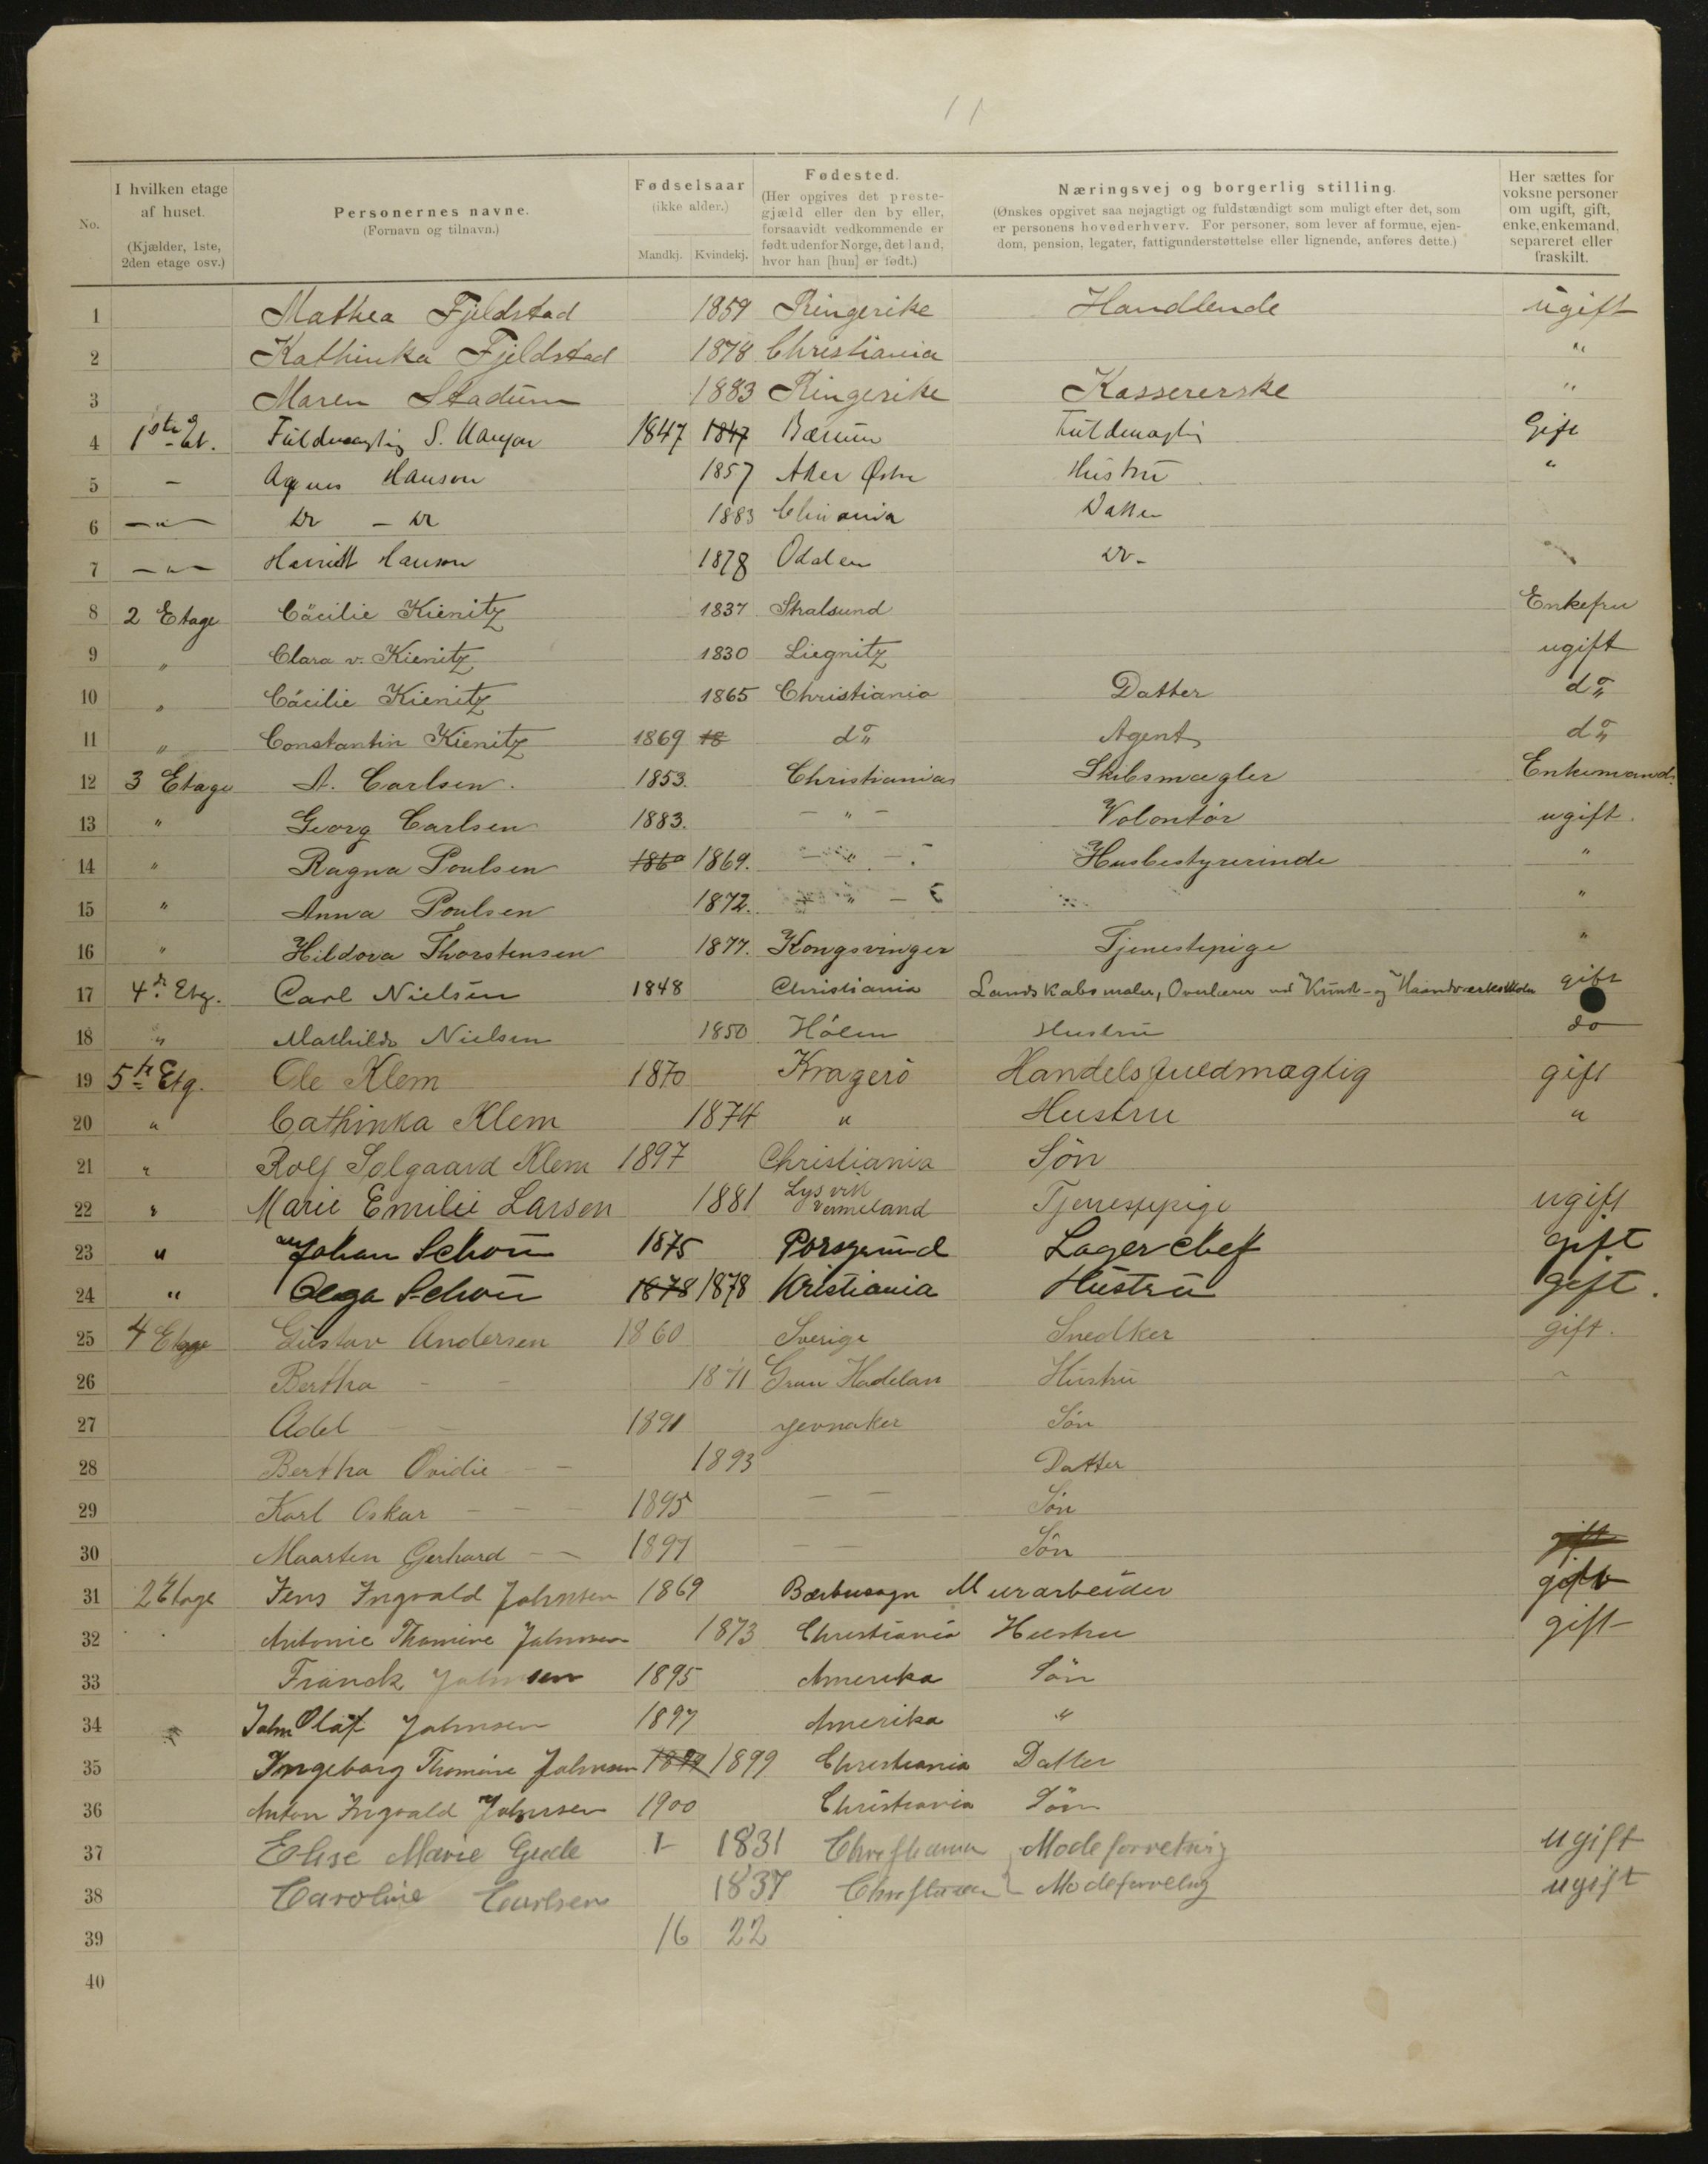 11
No.
I hvilken etage af huset. (Kjælder, 1ste, 2den etage osv.)
Personernes navne. (Fornavn og tilnavn.)
Fødselsaar (ikke alder.) Mandkj. Kvindekj.
Fødested. (Her opgives det prestegjæld eller den by eller, forsaavidt vedkommende er født udenfor Norge, det land, hvor han [hun] er født.)
Næringsvej og borgerlig stilling. (Ønskes opgivet saa nøjagtigt og fuldstændigt som muligt efter det, som er personens hovederhverv. For personer, som lever af formue, ejendom, pension, legater, fattigunderstøttelse eller lignende, anføres dette.)
Her sættes for voksne personer om ugift, gift, enke, enkemand, separeret eller fraskilt.
1 Mathea Fjeldstad 1859 Ringerike Handlende ugift
2 Kathinka Fjeldstad 1878 Christiania "
3 Maren Stadum 1883 Ringerike Kassererske "
4 1ste Et. Fuldmægtig S. Hansen 1847 1847 Bærum Fuldmægtig Gift
5 – Agnes Hansen 1857 Aker Østre Hustru "
6 – " – Dr – Dr 1883 Chriania Datter
7 – " – Harriett Hansen 1878 Odalen Dr –
8 2 Etage Cäcilie Kienitz 1837 Stralsund Enkefru
9 " Clara v. Kienitz 1830 Liegnitz ugift
10 " Cäcilie Kienitz 1865 Christiania Datter do "
11 " Constantin Kienitz 1869 18 do " Agent do "
12 3 Etage A. Carlsen. 1853. Christiania Skibsmægler Enkemand.
13 " Georg Carlsen 1883. – " – Volontør ugift.
14 " Ragna Poulsen 1860 1869. – " – Husbestyrerinde "
15 " Anna Poulsen 1872. " – "
16 " Hildova Thorstensen 1877. Kongsvinger Tjenestepige "
17 4de Etg. Carl Nielsen 1848 Christiania Landskabsmaler, Overlærer ved Kunst- og Haandværksskolen gift
18 " Mathilde Nielsen 1850 Hölen Hustru do
19 5te Etg. Ole Klem 1870 Kragerö Handelsfuldmægtig gift
20 " Cathinka Klem 1874 " Hustru "
21 " Rolf Solgaard Klem 1897 Christiania Sön
22 " Marie Emilie Larsen 1881 Lysvik Vermeland Tjenestepige ugift
23 " Johan Schou 1875 Porsgrund Lagerchef gift
24 " Olga Schou 1878 1878 Kristiania Hustru gift.
25 4 Etage Gustav Andersen 1860 Sverige Snedker gift.
26 Bertha – – 1871 Gran Hadelan Hustru –
27 Adel – – 1891 Jevnaker Sön
28 Bertha Ovidie – – 1893 Datter
29 Karl Oskar – – – 1895 – – Sön
30 Maarten Gerhard – – 1897 – – Sön gift
31 2 Etage Jens Ingvald Johnsen 1869 Murarbeider gift
32 Antonie Thomine Johnsen 1873 Christiania Hustru gift
33 Franck Johnsen 1895 Amerika Sön
34 John Olaf Johnsen 1897 Amerika "
35 Ingeborg Thomine Johnsen 1899 1899 Christiania Datter
36 Anton Ingvald Johnsen 1900 Christiania Sön
37 Elise Marie Gude 1831 Christiania Modeforretning ugift
38 Caroline Carlsen 1837 Christiania Modeforretng ugift
39 16 22
40